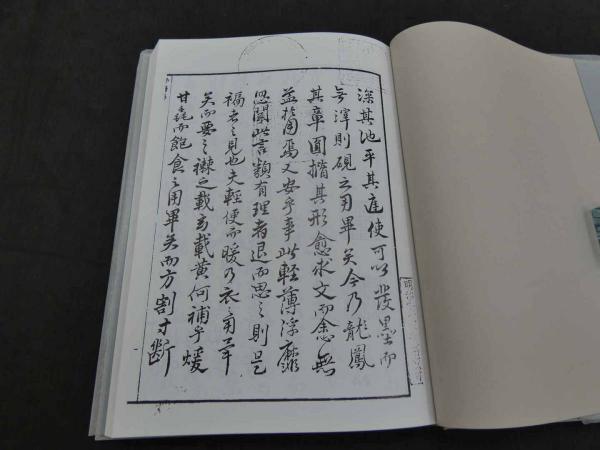 深其池平其庭使可以發墨而
無滓則硯之用畢矣今乃龍鳳
其章圓揩其形愈求文而愈無
益於用焉又安乎事此輕薄浮靡
思聞此言類有理者退而思之則是
福者之見也夫輕便而暖乃衣之用畢
矣而要之襟之載玄載黃何補乎煖
甘毳而飽食之用畢矣而方割寸斷